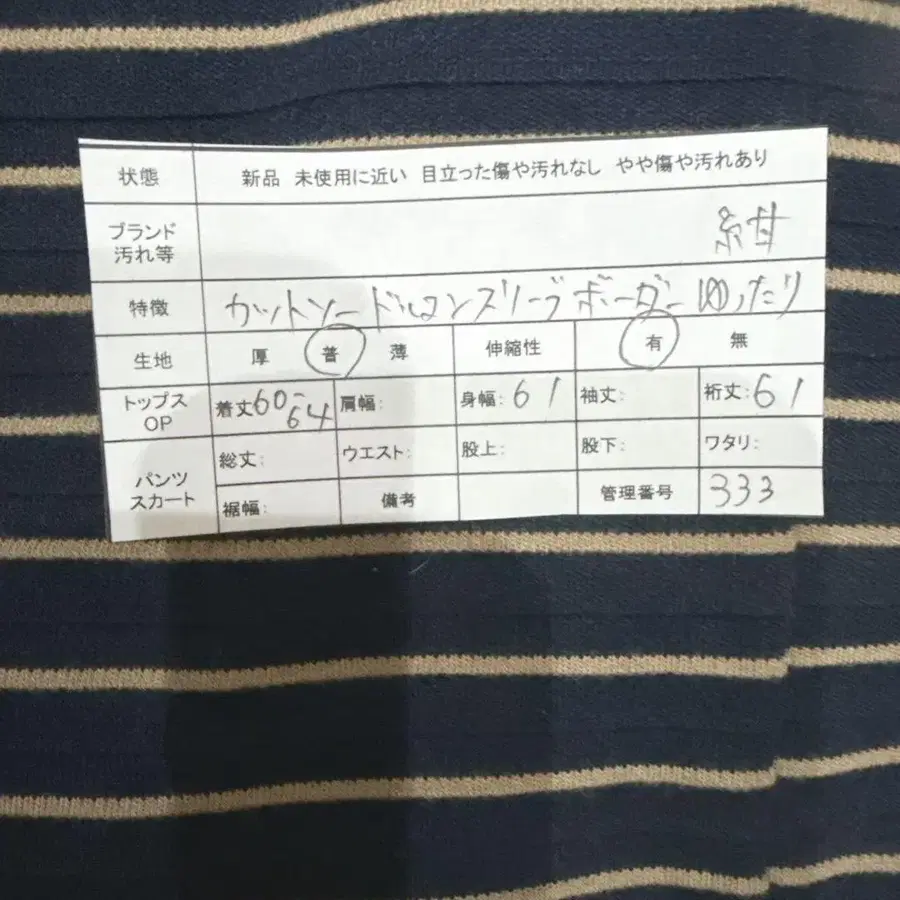 状態 新品 未使用に近い 目立った傷や汚れなし やや傷や汚れあり
ブランド
汚れ等 紺
特徴 カットソー ドルマンスリーブ ボーダー ゆったり
生地 厚 普 薄 伸縮性 有 無
トップス
OP 着丈60-64 肩幅: 身幅:61 袖丈: 裄丈:61
パンツ
スカート 総丈: ウエスト: 股上: 股下: ワタリ:
裾幅: 備考 管理番号 333